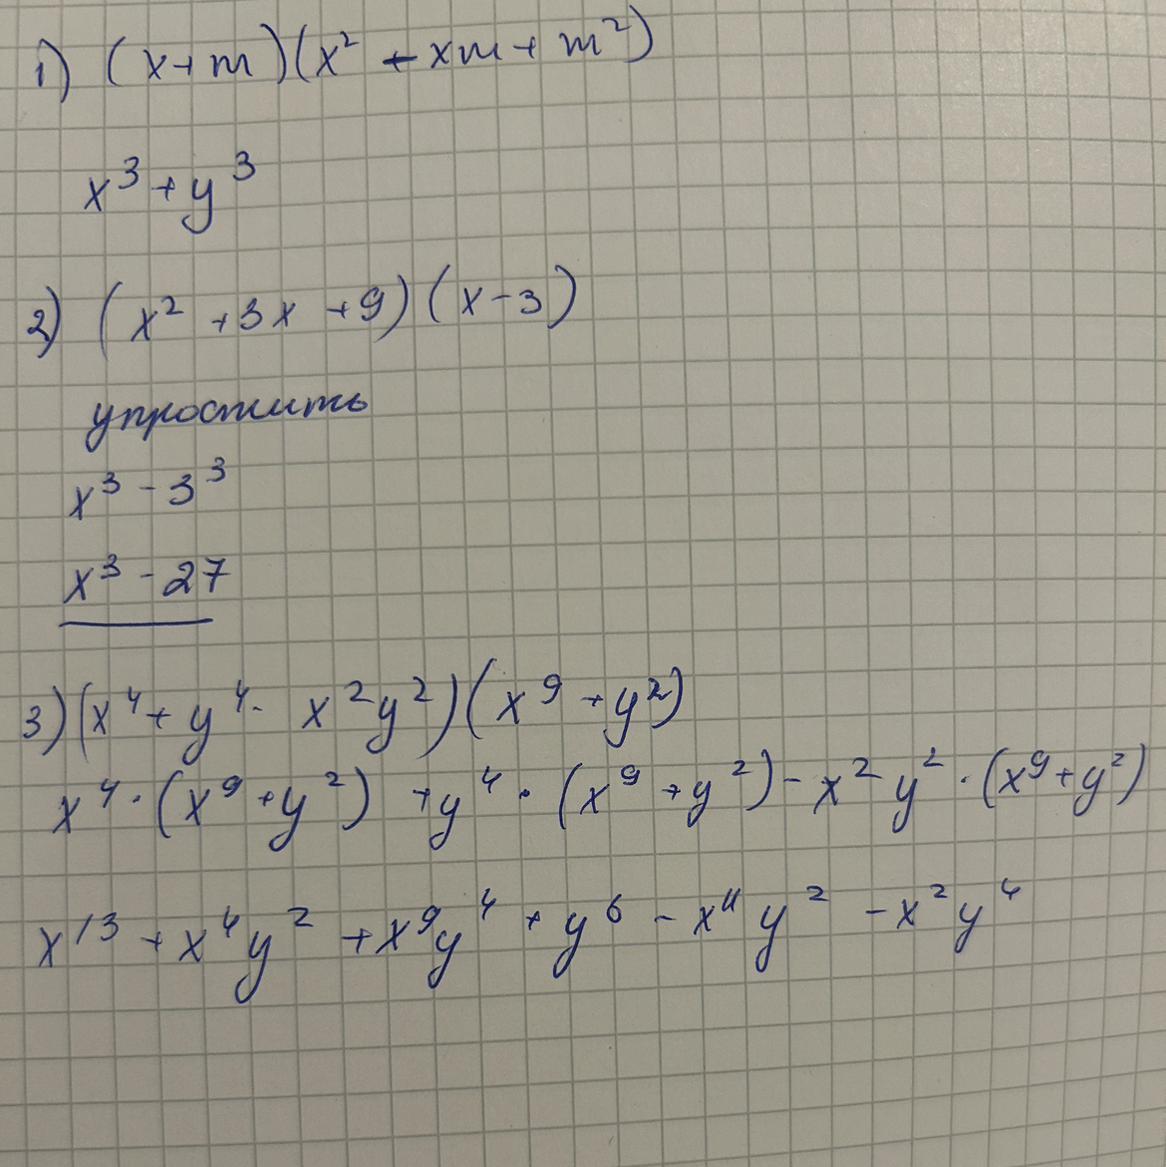 1) (x+m)(x² - xm + m²)
x³ + y³
2) (x² + 3x + 9)(x - 3)
упростить
x³ - 3³
x³ - 27
3) (x⁴ + y⁴ - x²y²)(x⁹ + y²)
x⁴ · (x⁹ + y²) + y⁴ · (x⁹ + y²) - x²y² · (x⁹ + y²)
x¹³ + x⁴y² + x⁹y⁴ + y⁶ - x¹¹y² - x²y⁴